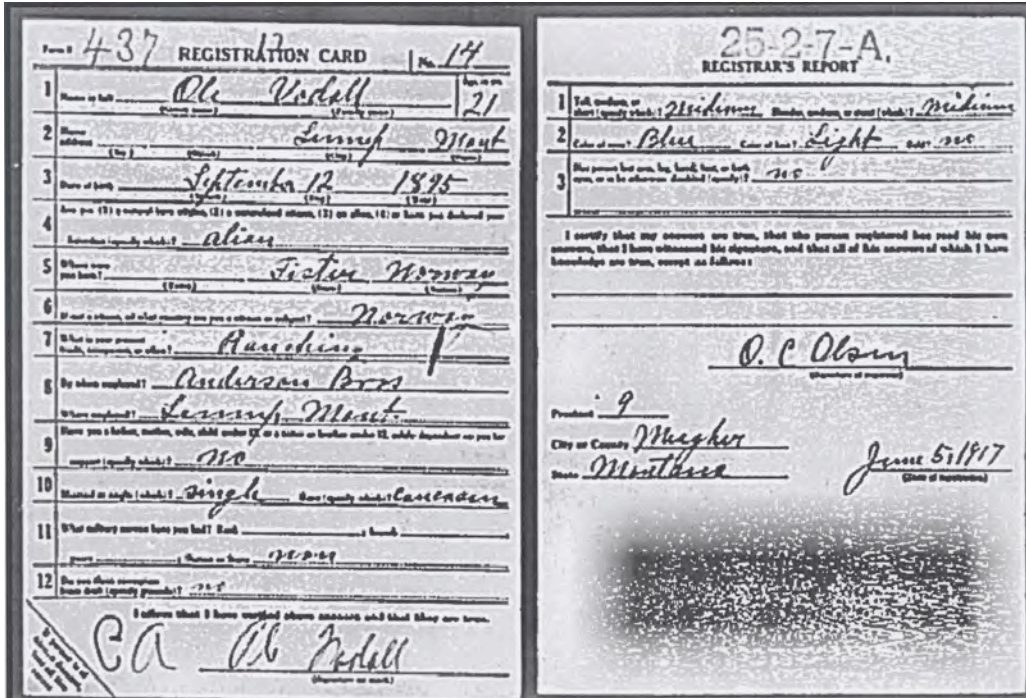 Form 1 437 REGISTRATION CARD No. 14
1 Name in full Ole Vadall Age, in yrs. 21
(Given name) (Family name)
2 Home address Lennep Mont
(No.) (Street) (City) (State)
3 Date of birth September 12 1895
(Month) (Day) (Year)
4 Are you (1) a natural born citizen, (2) a naturalized citizen, (3) an alien, (4) or have you declared your
intention (specify which)? alien
5 Where were you born? Fister Norway
(Town) (State) (Nation)
6 If not a citizen, of what country are you a citizen or subject? Norway
7 What is your present trade, occupation, or office? Ranching
8 By whom employed? Anderson Bros
Where employed? Lennep, Mont.
9 Have you a father, mother, wife, child under 12, or a sister or brother under 12, solely dependent on you for
support (specify which)? no
10 Married or single (which)? Single Race (specify which)? Caucasian
11 What military service have you had? Rank ; branch
years ; Nation or State none
12 Do you claim exemption from draft (specify grounds)? no
I affirm that I have verified above answers and that they are true.
CA
(Signature or mark)
25-2-7-A.
REGISTRAR'S REPORT
1 Tall, medium, or short (specify which)? Medium Slender, medium, or stout (which)? Medium
2 Color of eyes? Blue Color of hair? Light Bald? no
3 Has person lost arm, leg, hand, foot, or both eyes, or is he otherwise disabled (specify)? no
I certify that my answers are true, that the person registered has read his own
answers, that I have witnessed his signature, and that all of his answers of which I have
knowledge are true, except as follows:
O. C Olsen
(Signature of registrar)
Precinct 9
City or County Meagher
State Montana June 5, 1917
(Date of registration)